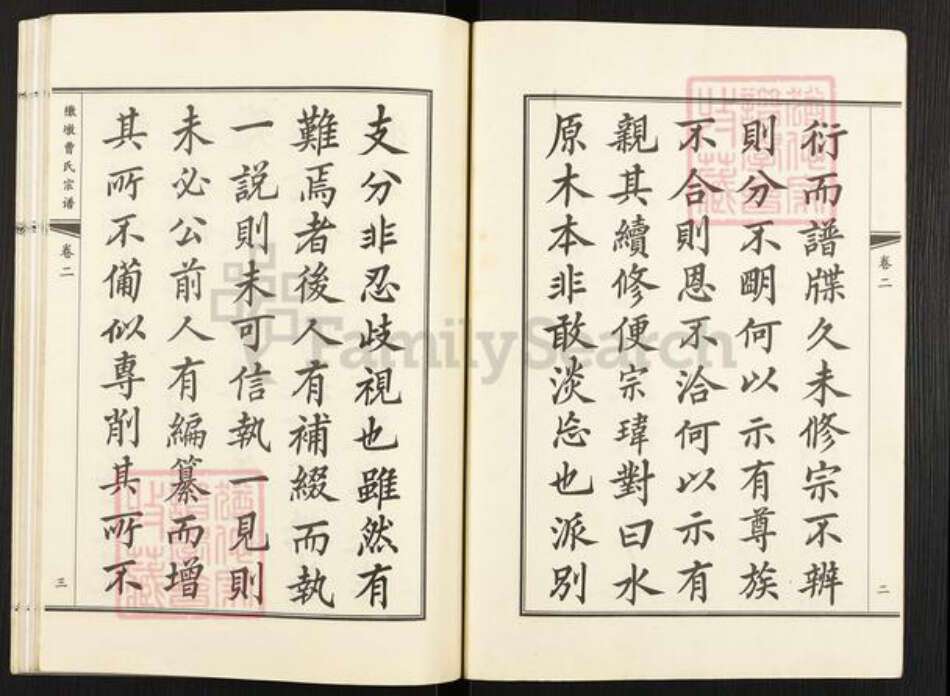 卷二
二
衍而譜牒久未修宗不辨
則分不明何以示有尊族
不合則恩不洽何以示有
親其續修便宗瑋對曰水
原木本非敢淡忘也派別
支分非忍歧視也雖然有
難焉者後人有補綴而執
一説則未可信執一見則
未必公前人有編纂而增
其所不備似專削其所不
墩曹氏宗谱
卷二
三
FamilySearch